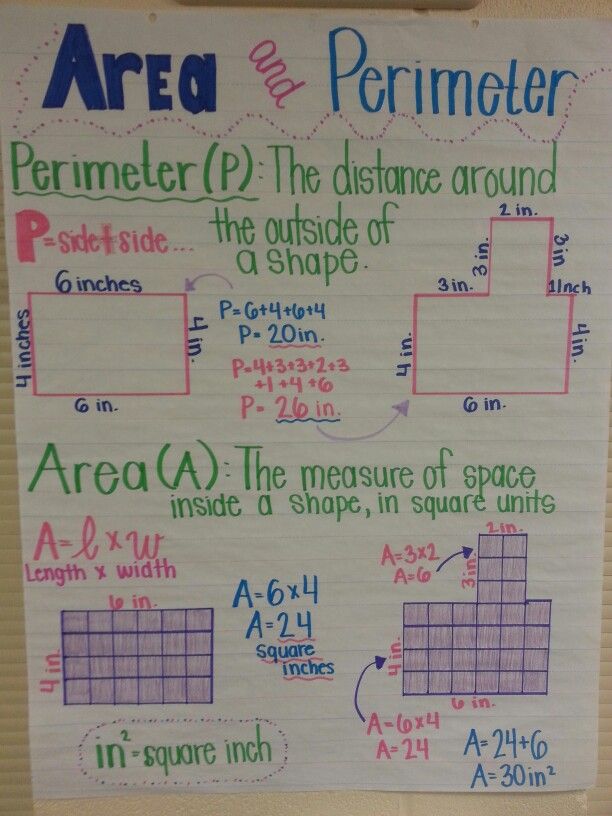 Area and Perimeter
Perimeter (P): The distance around
the outside of
a shape.
P=side+side...
6 inches
4 inches
4 in.
6 in.
P=6+4+6+4
P= 20in.
P=4+3+3+2+3
+1+4+6
P= 26 in.
2 in.
3 in.
3 in
3 in.
1 Inch
4 in.
4 in.
6 in.
Area (A): The measure of space
inside a shape, in square units
A=l x w
Length x width
6 in.
4 in.
A=6x4
A=24
square
inches
A=3x2
A=6
2in.
3in.
4 in.
6 in.
A=6x4
A=24
A=24+6
A=30in²
in²=square inch